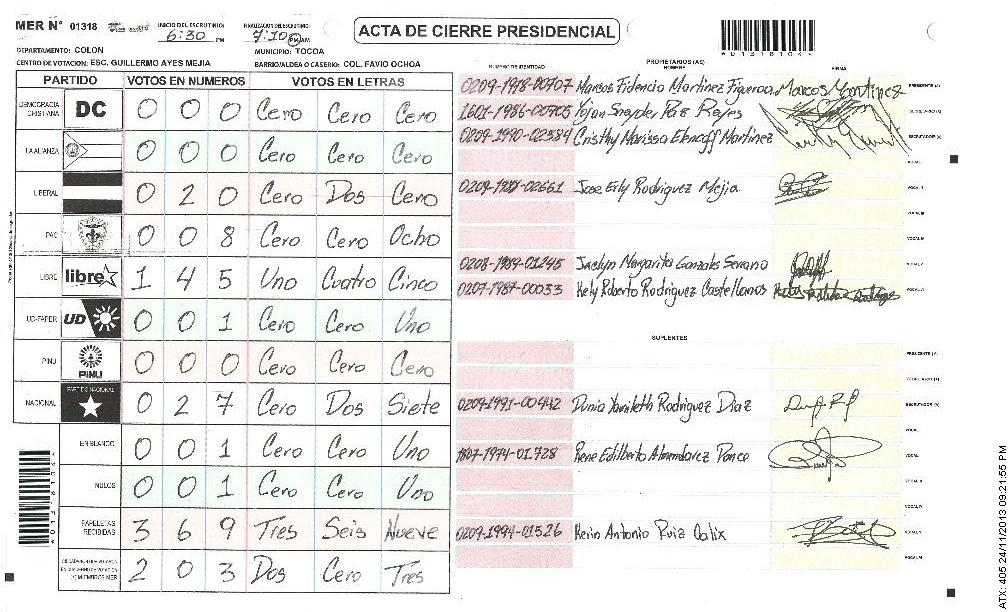 MER N° 01318
INICIO DEL ESCRUTINIO:
6:30 PM
FINALIZACION DEL ESCRUTINIO:
7:10 PM AM
ACTA DE CIERRE PRESIDENCIAL
*01318104*
DEPARTAMENTO: COLON
MUNICIPIO: TOCOA
CENTRO DE VOTACION: ESC. GUILLERMO AYES MEJIA
BARRIO/ALDEA O CASERIO: COL. FAVIO OCHOA
PARTIDO VOTOS EN NUMEROS VOTOS EN LETRAS
DEMOCRACIA CRISTIANA DC 0 0 0 Cero Cero Cero
LA ALIANZA 0 0 0 Cero Cero Cero
LIBERAL 0 2 0 Cero Dos Cero
PAC 0 0 8 Cero Cero Ocho
LIBRE libre 1 4 5 Uno Cuatro Cinco
UD-FAPER UD 0 0 1 Cero Cero Uno
PINU PINU 0 0 0 Cero Cero Cero
NACIONAL PARTIDO NACIONAL 0 2 7 Cero Dos Siete
EN BLANCO 0 0 1 Cero Cero Uno
NULOS 0 0 1 Cero Cero Uno
PAPELETAS RECIBIDAS 3 6 9 Tres Seis Nueve
(+) MIEMBROS MER 2 0 3 Dos Cero Tres
PROPIETARIOS (AS)
NUMERO DE IDENTIDAD NOMBRE FIRMA
0209-1978-00707 Marcos Fidencio Martinez Figueroa Marcos Martinez PRESIDENTE (A)
1601-1986-00705 Yojan Snayder Paz Reyes SECRETARIO (A)
0209-1990-02584 Cristhy Marissa Elencoff Martinez ESCRUTADOR (A)
VOCAL I
Jose Erly Rodriguez Mejia VOCAL II
VOCAL III
VOCAL IV
0208-1989-01245 Jaclyn Margarita Gonzales Serrano VOCAL V
0207-1987-00033 Kely Roberto Rodriguez Castellanos VOCAL VI
SUPLENTES
PRESIDENTE (A)
SECRETARIO (A)
0209-1991-00442 Dunia Yamileth Rodriguez Diaz ESCRUTADOR (A)
VOCAL I
1807-1974-01728 Rene Edilberto Almendarez Ponce VOCAL II
VOCAL III
VOCAL IV
0209-1994-01526 Kevin Antonio Ruiz Calix VOCAL V
VOCAL VI
ATX: 405 24/11/2013 09:21:55 PM